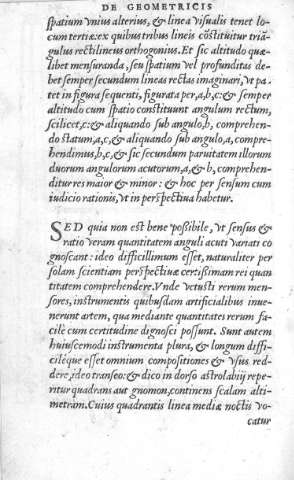 DE GEOMETRICIS
spatium vnius alterius, & linea visualis tenet lo-
cum tertiæ. ex quibus tribus lineis cōstituitur triā-
gulus rectilineus orthogonius. Et sic altitudo quæ-
libet mensuranda, seu spatium vel profunditas de-
bet semper secundum lineas rectas imaginari, vt pa-
tet in figura sequenti, figurata per, a, b, c: & semper
altitudo cum spatio constituunt angulum rectum,
scilicet, c: & aliquando sub angulo, b, comprehen-
do statum, a, c, & aliquando sub angulo, a, compre-
hendimus, b, c, & sic secundum paruitatem illorum
duorum angulorum acutorum, a, & b, comprehen-
ditur res maior & minor: & hoc per sensum cum
iudicio rationis, vt in perspectiua habetur.
SED quia non est bene possibile, vt sensus &
ratio veram quantitatem anguli acuti variati co
gnoscant: ideo difficillimum esset, naturaliter per
solam scientiam perspectiuæ certissimam rei quan
titatem comprehendere. Vnde vetusti rerum men-
sores, instrumentis quibusdam artificialibus inue-
nerunt artem, qua mediante quantitates rerum fa-
cilè cum certitudine dignosci possunt. Sunt autem
huiuscemodi instrumenta plura, & longum diffi-
ciléque esset omnium compositiones & vsus red-
dere, ideo transeo: & dico in dorso astrolabij repe-
ritur quadrans aut gnomon, continens scalam alti-
metram. Cuius quadrantis linea mediæ noctis vo-
catur